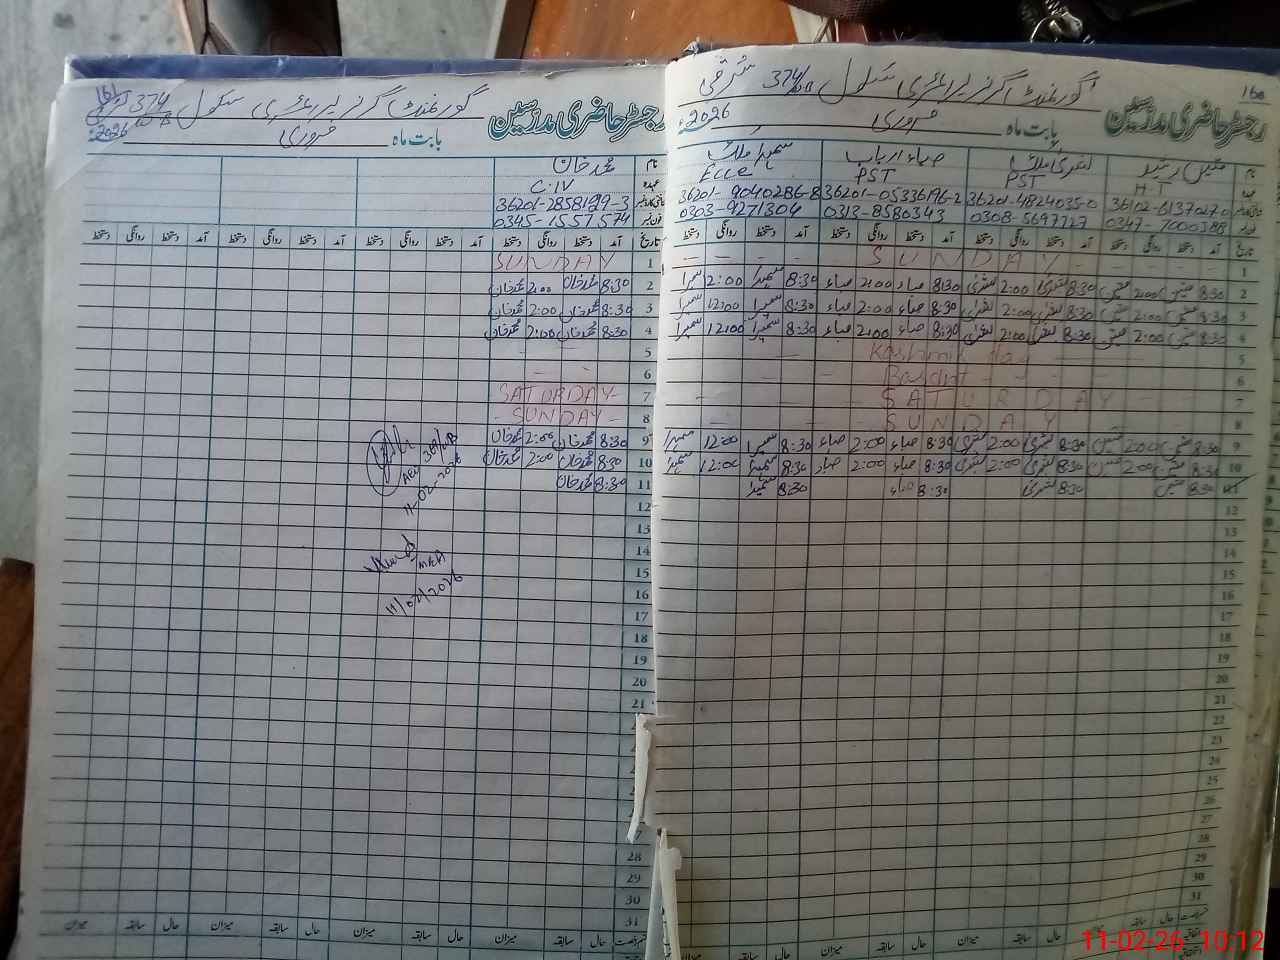 160
رجسٹر حاضری مدرسین
گورنمنٹ گرلز پرائمری سکول 374/EB شرقی
بابت ماہ فروری 2026ء
نام
عہدہ H.T PST PST Ecce
36102-6137027-0 36201-4824035-0 36201-0533696-2 36201-9040286-8
0347-7000388 0308-5697727 0313-8580343 0303-9271304
تاریخ آمد دستخط روانگی دستخط آمد دستخط روانگی دستخط آمد دستخط روانگی دستخط آمد دستخط روانگی دستخط
1 SUNDAY
2 8:30 2:00 8:30 2:00 8:30 صباء 2:00 صباء 8:30 سمیرا 2:00 سمیرا
3 8:30 2:00 8:30 2:00 8:30 صباء 2:00 صباء 8:30 سمیرا 12:00 سمیرا
4 8:30 2:00 8:30 2:00 8:30 صباء 2:00 صباء 8:30 سمیرا 12:00 سمیرا
5 Kashmir day
6 Basant
7 SATURDAY
8 SUNDAY
9 8:30 2:00 8:30 2:00 8:30 صباء 2:00 صباء 8:30 سمیرا 12:00 سمیرا
10 8:30 2:00 8:30 2:00 8:30 صباء 2:00 صباء 8:30 سمیرا 12:00 سمیرا
11 8:30 8:30 8:30 صباء 8:30 سمیرا
12
13
14
15
16
17
18
19
20
21
22
23
24
25
26
27
28
29
30
31
حال سابقہ میزان حال سابقہ میزان حال سابقہ میزان
161
رجسٹر حاضری مدرسین
گورنمنٹ گرلز پرائمری سکول 374/EB شرقی
بابت ماہ فروری 2026ء
نام محمد خان
عہدہ C.IV
36201-2858199-3
0345-1557574
تاریخ آمد دستخط روانگی دستخط آمد دستخط روانگی دستخط آمد دستخط روانگی دستخط آمد دستخط روانگی دستخط
1 SUNDAY
2 8:30 محمد خان 2:00 محمد خان
3 8:30 محمد خان 2:00 محمد خان
4 8:30 محمد خان 2:00 محمد خان
5
6
7 SATURDAY
8 SUNDAY
9 8:30 محمد خان 2:00 محمد خان
10 8:30 محمد خان 2:00 محمد خان
11 8:30 محمد خان
11-02-2026
12
13
14
MEA
15
11/02/2026
16
17
18
19
20
21
28
29
30
31
حال سابقہ میزان حال سابقہ میزان حال سابقہ میزان حال سابقہ میزان
11-02-26 10:12